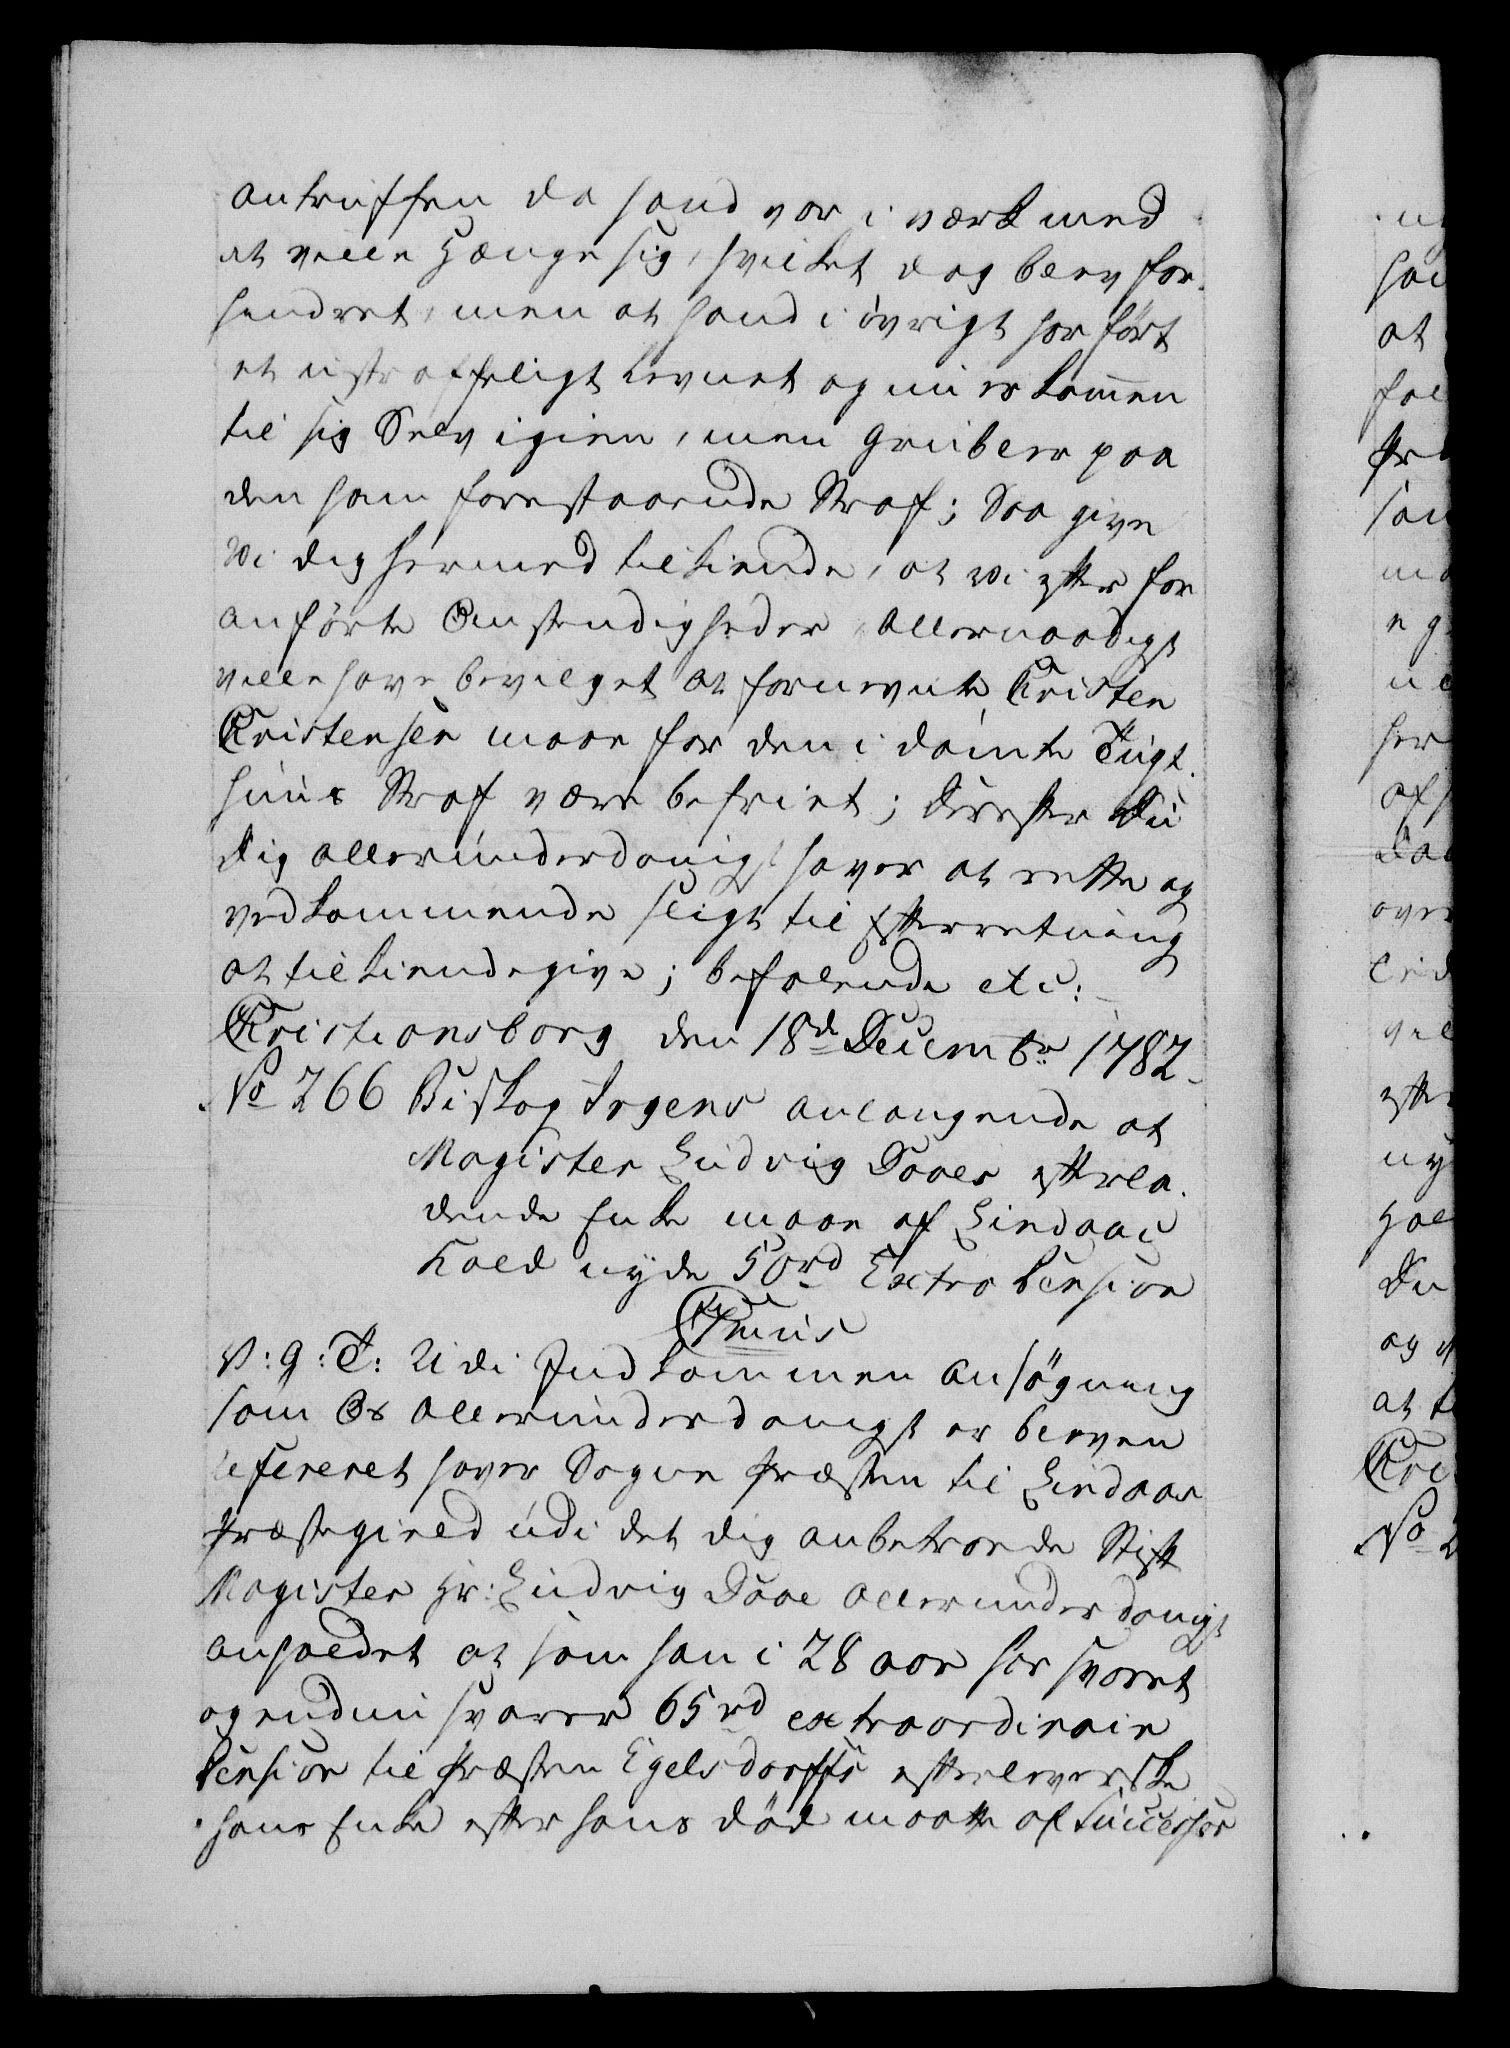 antruffen da hand var i værk med
at ville Hænge sig, hvilket dog blev for-
hindret, men at hand i övrigt har fört
et ustraffeligt Levnet og nu er kommen
til sig Selv igien, men grubler paa
den ham forestaaende Straf; Saa give
Wi dig hermed tilkiende, at Wi efter for
anförte Omstendigheder Allernaadigst
ville have bevilget at fornevnte Kristen
Kristensen maae for den i dömte Tugt-
huus Straf være befriet; Derefter Du
dig allerunderdanigst haver at rette og
vedkommende sligt til Efterretning
at tilkiendegive; befalende etc:
Kristiansborg den 18de Decembr 1782.
No 266 Biskop Irgens anlangende at
Magister Ludvig Daaes efterla-
dende Enke maae af Lindaas
Kald nyde 50rd Extra Pension
V: g: T: Udi Indkommen Ansögning
som Os Allerunderdanigst er bleven
refereret haver Sogne Præsten til Lindaas
Præstegield udi det dig anbetroede Stift
Magister Hr: Ludvig Daae Allerunderdanigst
anholdet at som han i 28 aar har svaret
og endnu svarer 65rd extraordinair
Pension til Præsten Egelsdorffs efterleverske
hans Enke efter hans död maatte af Successor